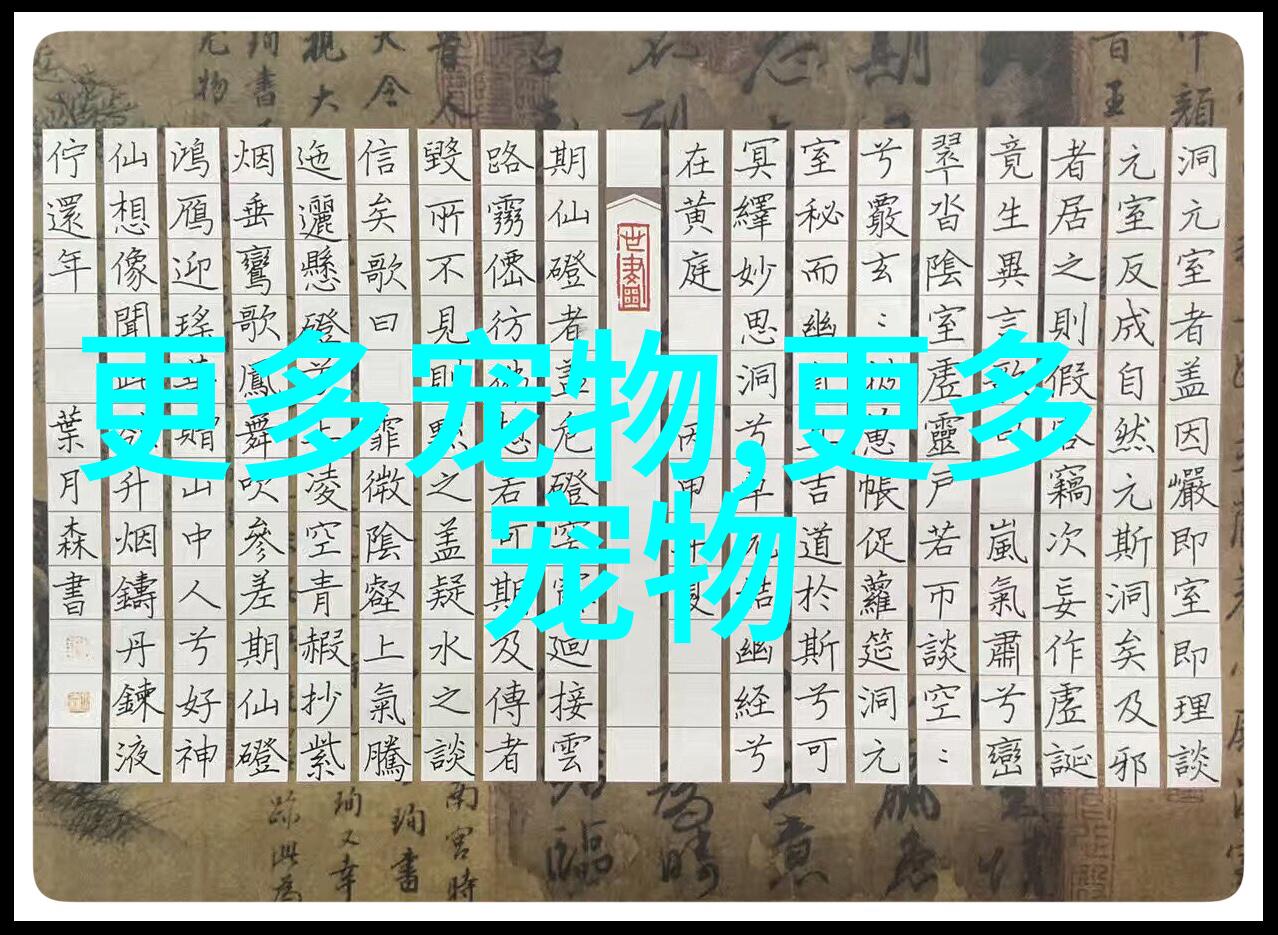 更多宠物,更多
宠物
洞元室者盖因巖即室即理談
元室反成自然元斯洞矣及邪
者居之則假容竊次妄作虛誕
竟生異言歌曰嵐氣肅兮巒
翠沓陰室虛靈户若市談空:
兮覈玄:彼蕙帳促蘿筵洞元
室秘而幽吉道於斯兮可
冥繹妙思洞兮草幽経兮
在黃庭
丙申夏
世畫
期仙磴者蓋危磴穹窿迴接雲
路霧彷彿想若可期及傳者
毀所不見則黙之盖疑水之談
信矣歌曰霏微陰壑上氣騰
迤邐懸磴兮上凌空青抄紫
烟垂鸞歌鳳舞吹參差期仙磴
鴻鴈迎瑤華贈山中人兮好神
仙想像聞此欲升烟鑄丹鍊液
佇還年
葉月森書